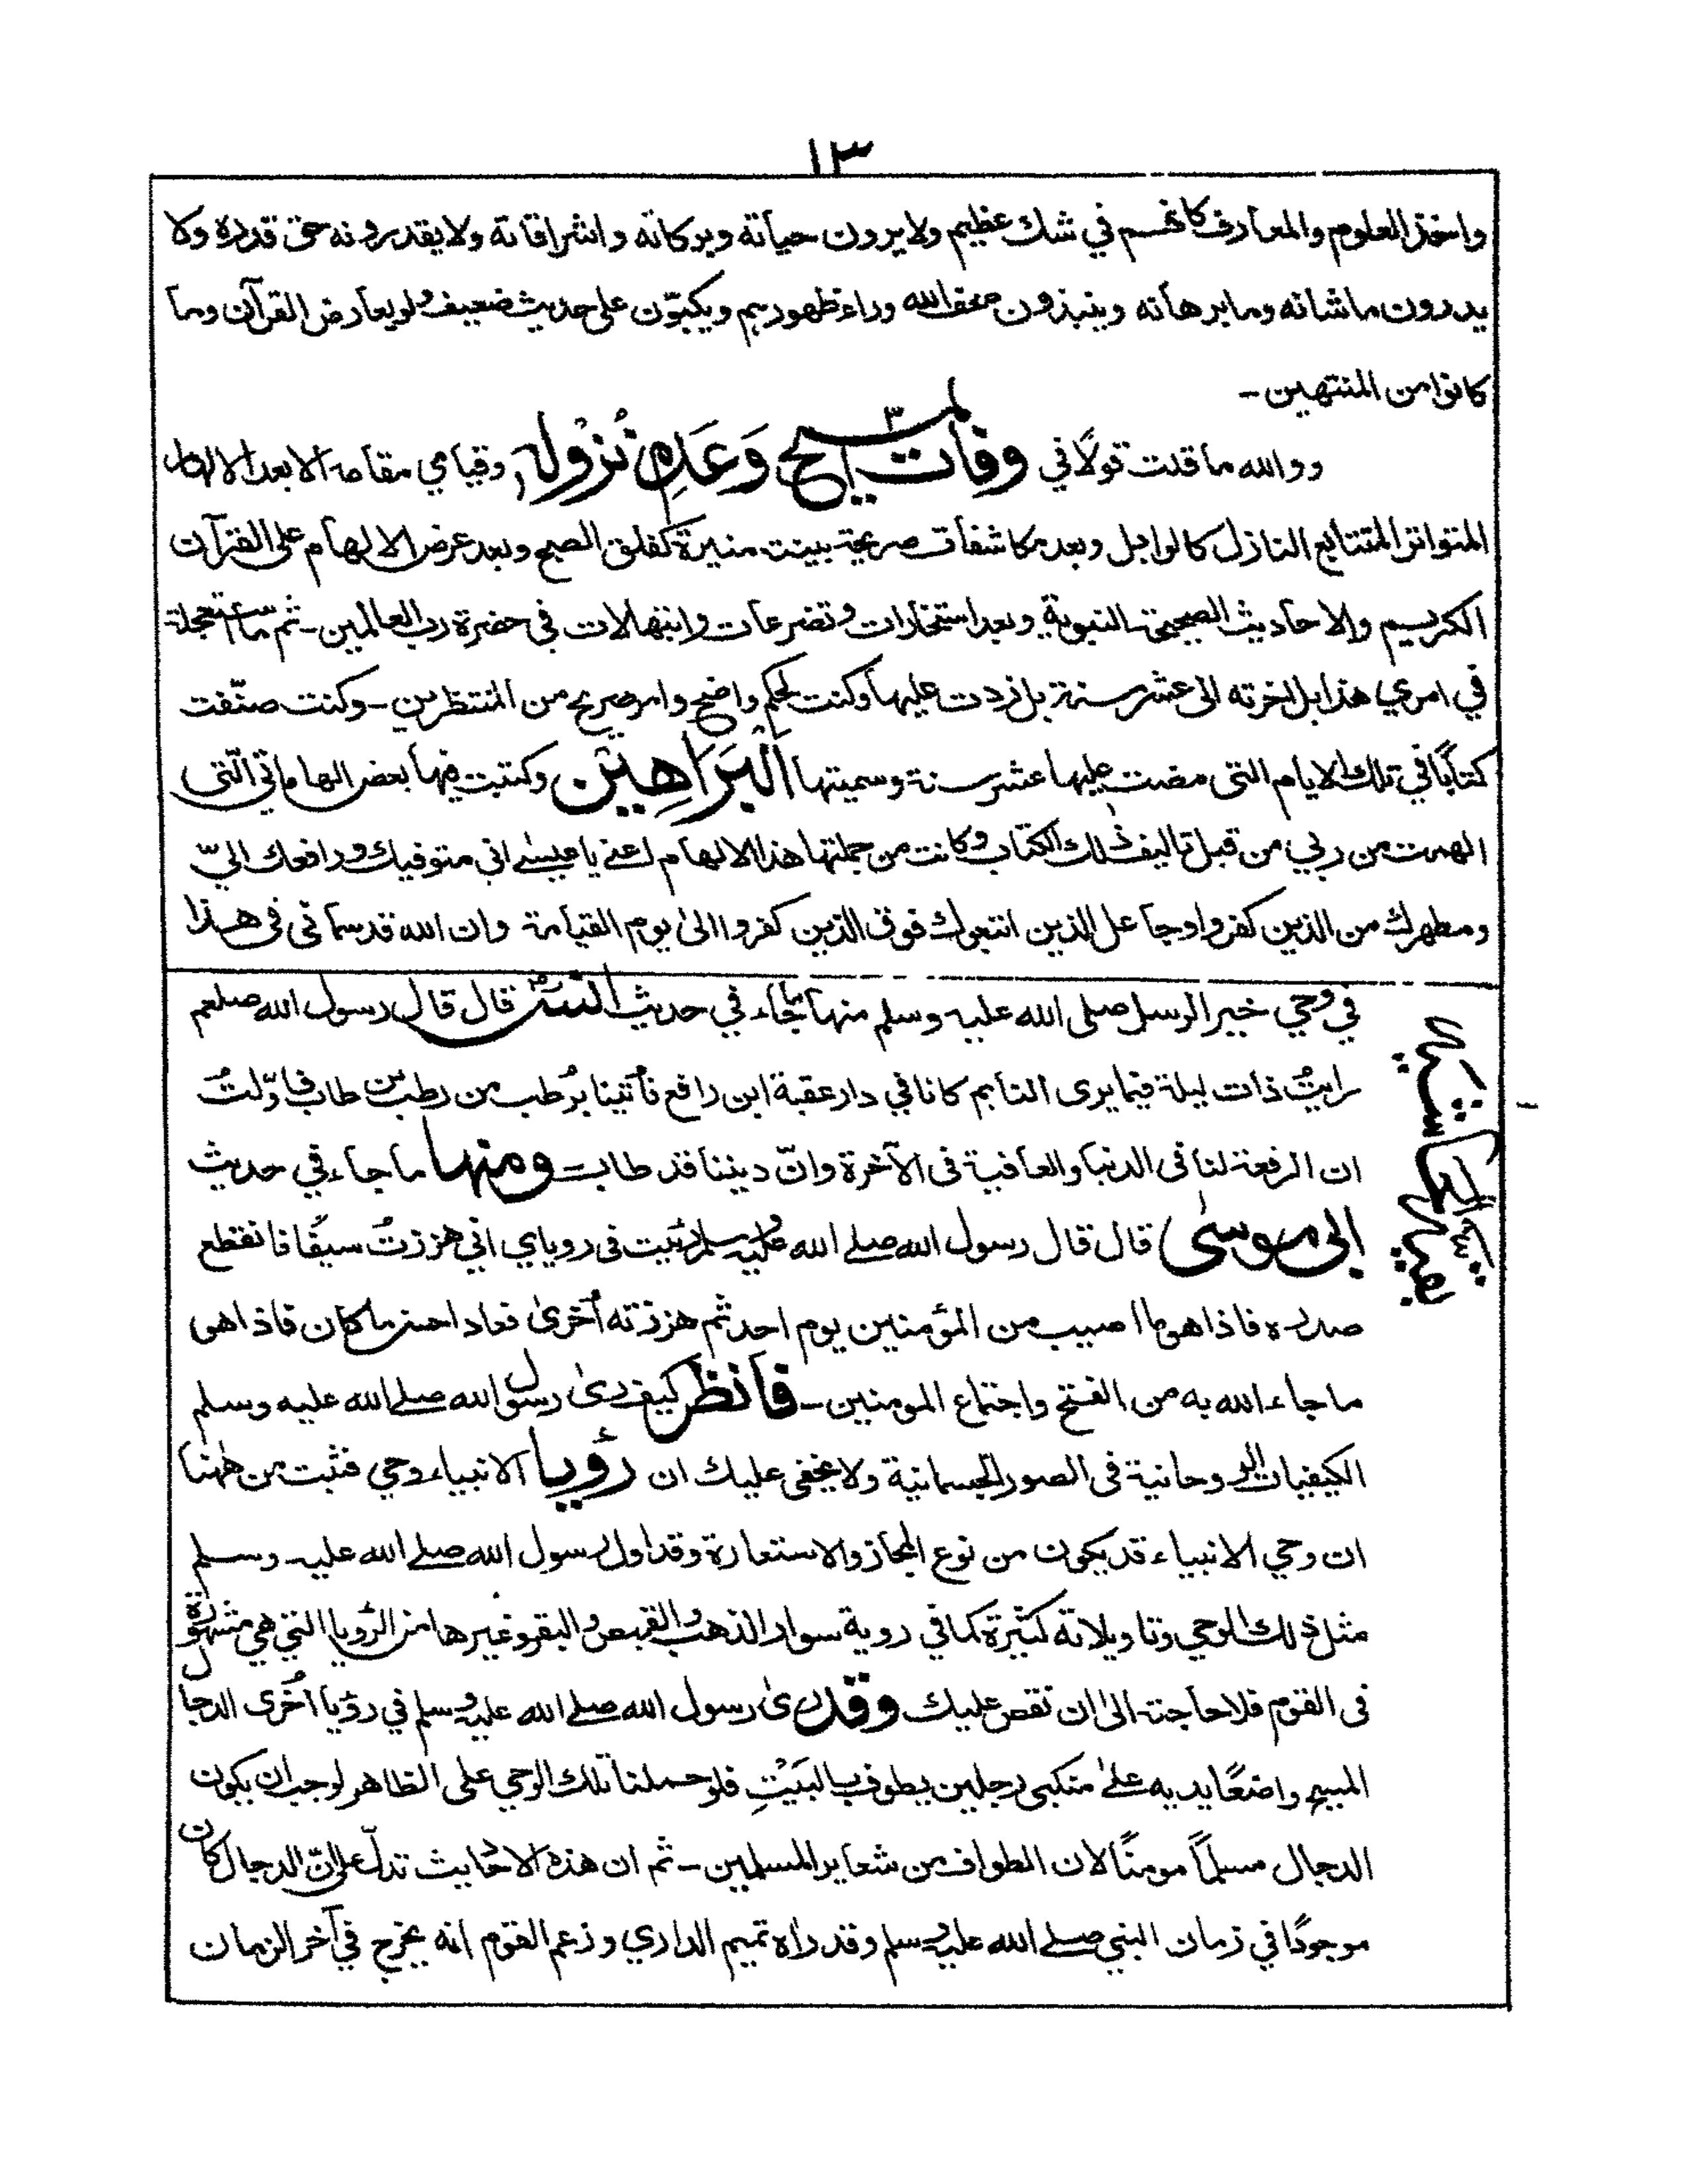 ١٣
واخذ العلوم والمعارف كانهم في شك عظيم ولا يرون حياته وبركاته واشراقاته ولا يقدرونه حق قدره ولا
يدرون ما شانه وما برهانه وينبذون صحف الله وراء ظهورهم ويكبّون على حديث ضعيف ولو يعارض القرآن وما
كانوا من المنتهين -
ووالله ما قلت قولًا في وفات المسيح وَعَدمِ نُزُوله وقيامي مقامه الا بعد الالهام
المتواتر المتتابع النازل كالوابل وبعد مكاشفات صريحة بينت منيرة كفلق الصبح وبعد عرض الالهام على القرآن
الكريم والاحاديث الصحيحة النبوية وبعد استخارات وتضرعات وابتهالات في حضرة رب العالمين - ثم ما استعجلت
في امري هذا بل اخرته الى عشر سنة بل زدت عليها وكنت لحكم واضح وامر صريح من المنتظرين - وكنت صنّفت
كتابًا في تلك الايام التي مضت عليها عشر سنة وسميتها البَرَاهِين وكتبت فيها بعض الهاماتي الّتي
الهمت من ربي من قبل تاليف ذلك الكتاب وكانت من جملتها هذا الالهام اعني يا عيسٰے اني متوفيك ورافعك اليّ
ومطهرك من الذين كفروا وجاعل الذين اتبعوك فوق الذين كفروا الىٰ يوم القيامة وان الله قد سماني في هذا
بقية الحاشية
في وحي خير الرسل صلى الله عليه وسلم منها ما جاء في حديث انس قال قال رسول الله صلعم
رايتُ ذات ليلة فيما يرى النايم كانا في دار عقبة ابن رافع فأتينا برُطب من رطب بن طاب فاوّلتُ
ان الرفعة لنا في الدنيا والعافية في الآخرة وانّ ديننا قد طاب ومنها ما جاء في حديث
ابى موسىٰ قال قال رسول الله صلے الله عليه وسلم رئيت في روياي اني هززتُ سيفًا فانقطع
صدره فاذا هو ما اصيب من المؤمنين يوم احد ثم هززته أخرىٰ فعاد احسن ما كان فاذا هى
ما جاء الله به من الفتح واجتماع المومنين - فانظر كيف رىٰ رسول الله صلے الله عليه وسلم
الكيفيات الروحانية في الصور الجسمانية ولا يخفى عليك ان رؤيا الانبياء وحي فثبت من ههنا
ان وحي الانبياء قد يكون من نوع المجاز والاستعارة وقد اول رسول الله صلے الله عليه وسلم
مثل ذلك الوحي وتاويلاته كثيرة كما في روية سوار الذهب والقميص والبقر وغيرها من الرؤيا التي هي مشهورة
في القوم فلا حاجة الىٰ ان نقص عليك وقد رىٰ رسول الله صلے الله عليه وسلم في رؤيا اُخرى الدجال
المسيح واضعًا يديه علےٰ منكبى رجلين يطوف بالبَيْتِ فلو حملنا تلك الوحي على الظاهر لوجب ان يكون
الدجال مسلمًا مومنًا لان الطواف من شعاير المسلمين - ثم ان هذه الاحاديث تدلّ على انّ الدجال كان
موجودًا في زمان النبي صلے الله عليه وسلم وقد راٰه تميم الداري وزعم القوم انه يخرج في آخر الزمان